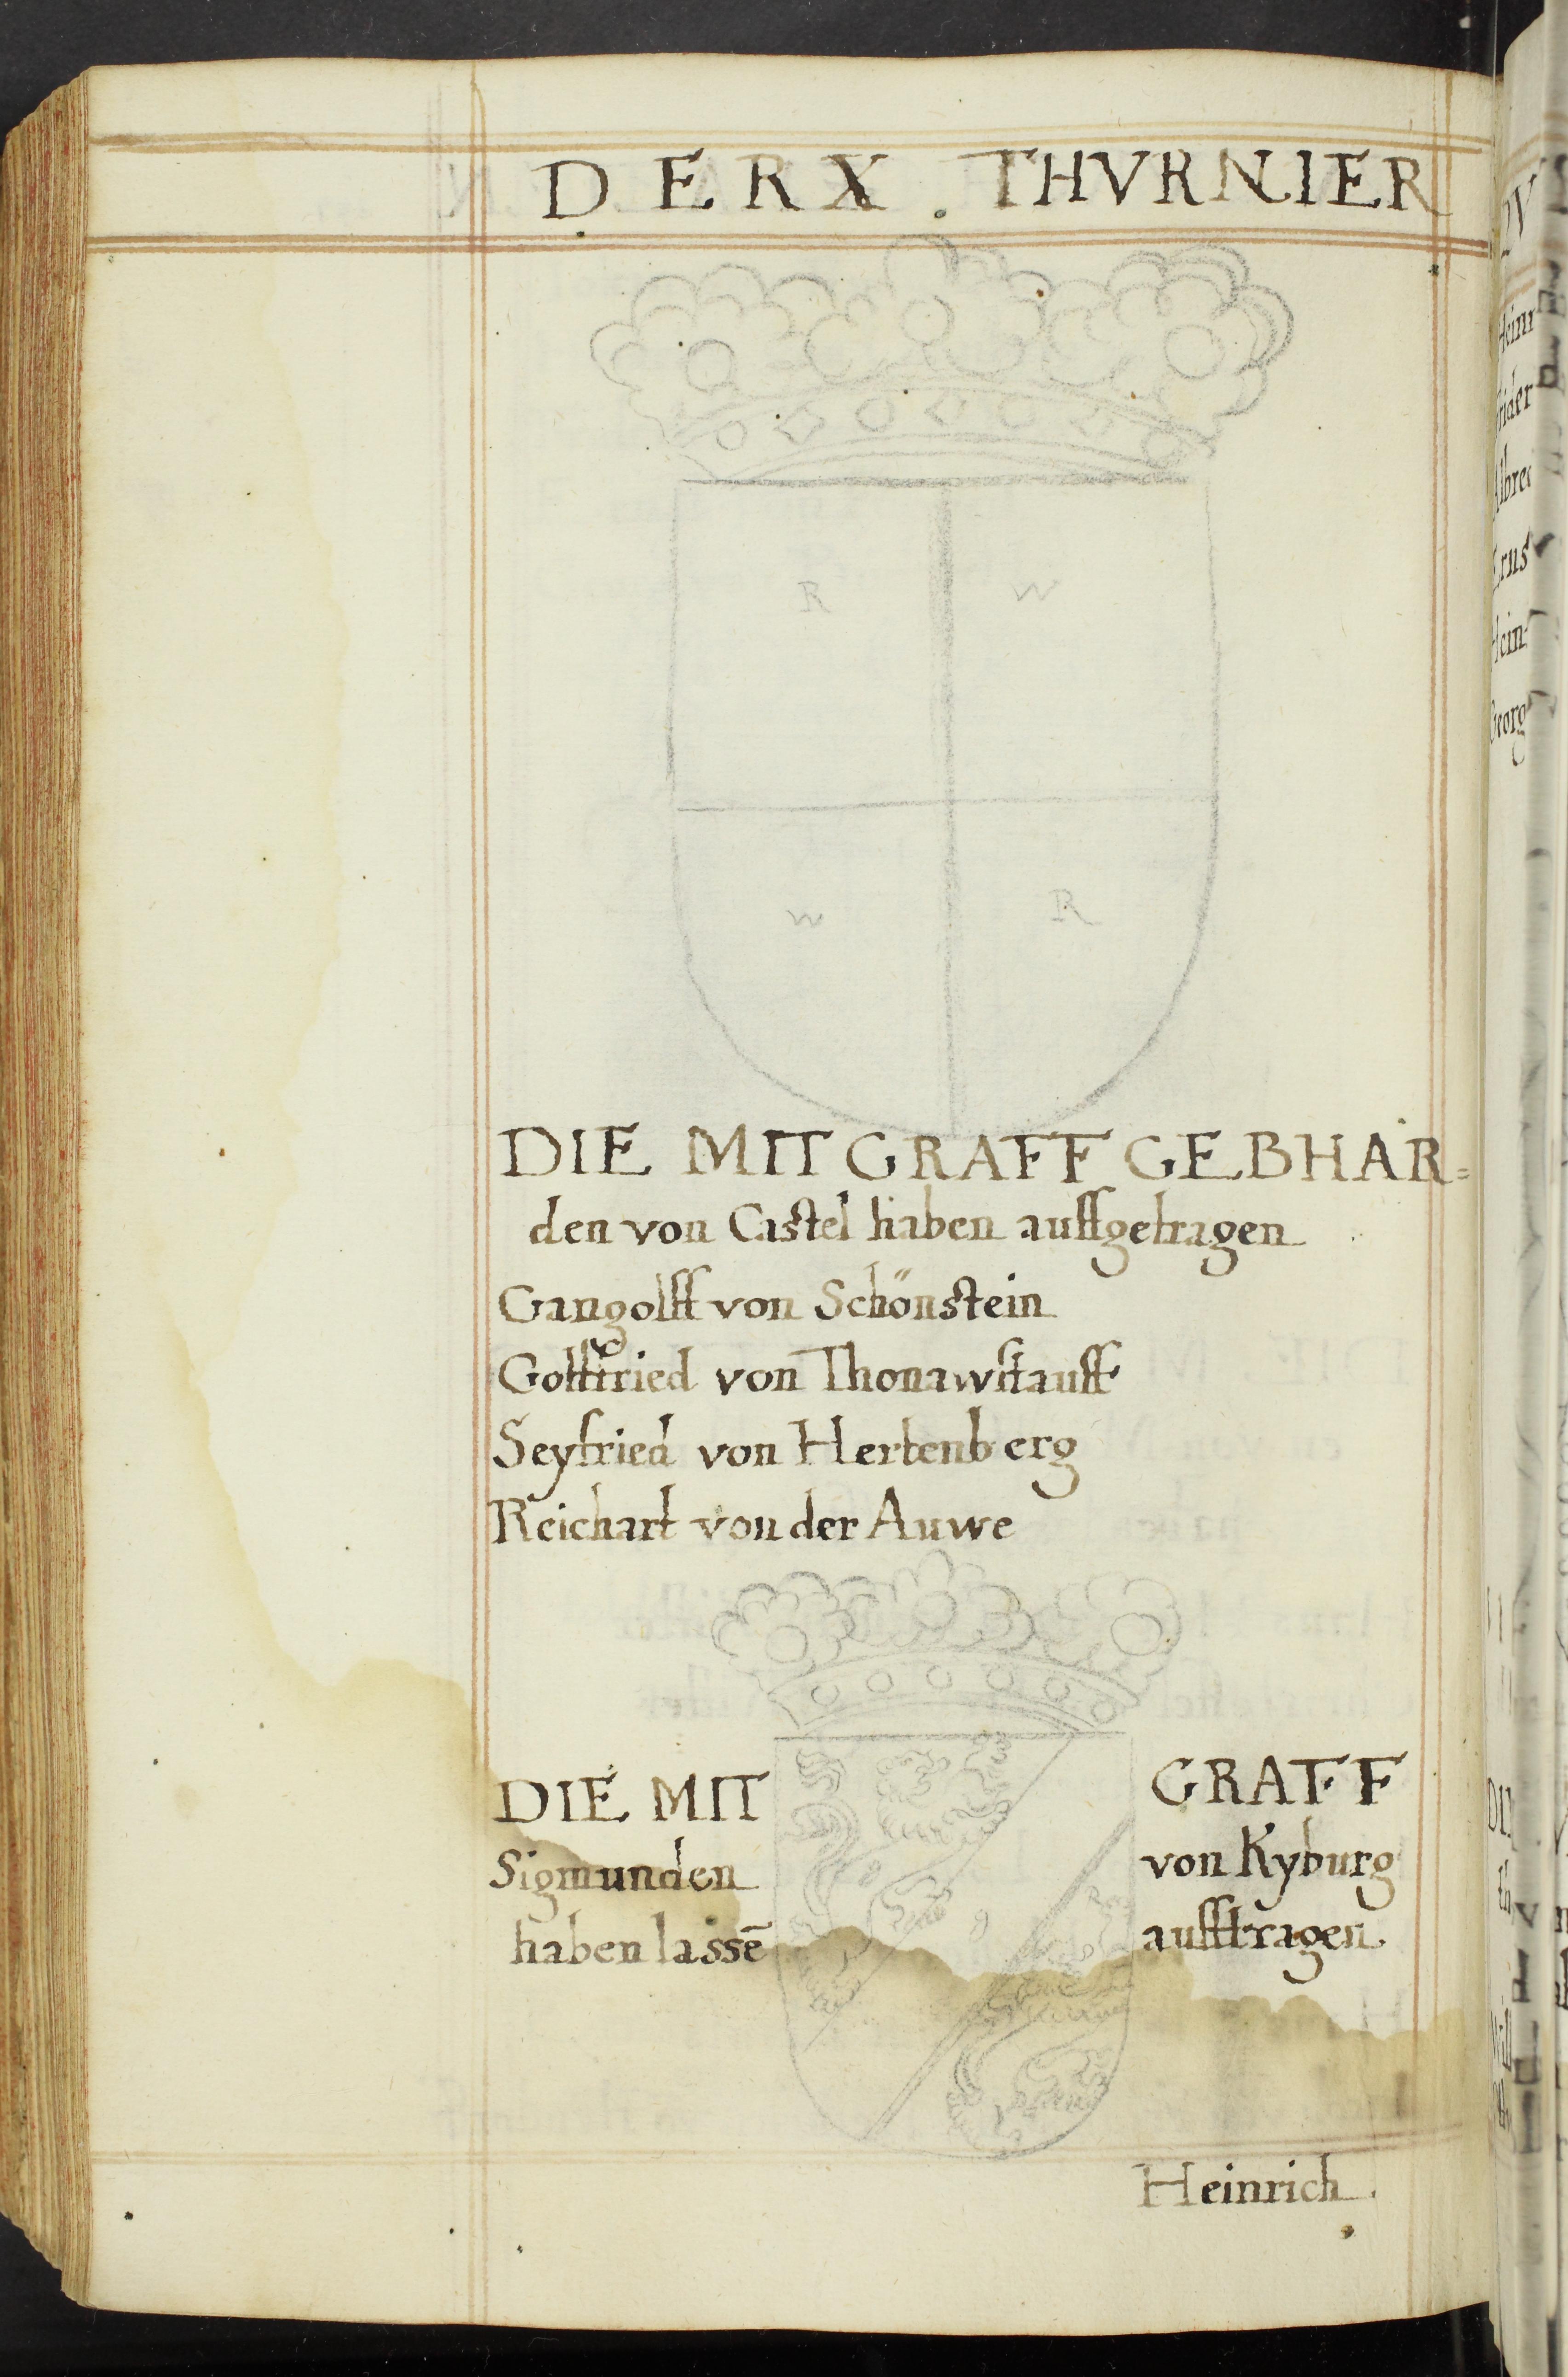 DER X. THVRNIER
R W
W R
DIE MIT GRAFF GEBHAR=
den von Castel haben auffgetragen
Gangolff von Schönstein
Gottfried von Thonawstauff
Seyfried von Hertenberg
Reichart von der Auwe
DIE MIT GRAFF
Sigmunden von Kyburg
haben lassē aufftragen
Heinrich